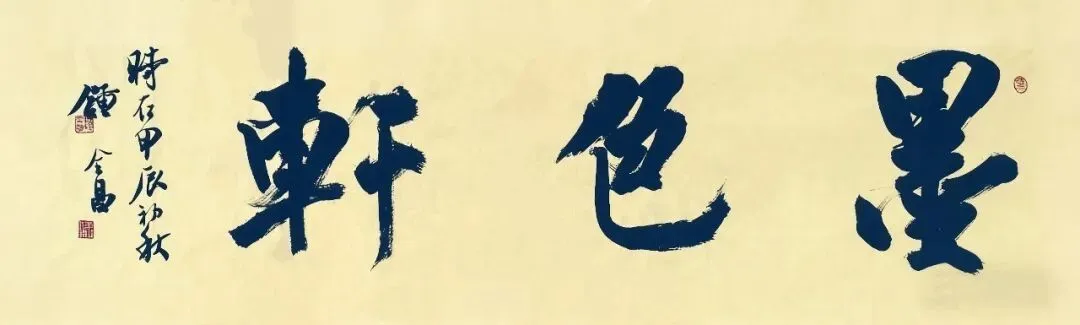 墨色軒
時在甲辰初秋
鍾金昌